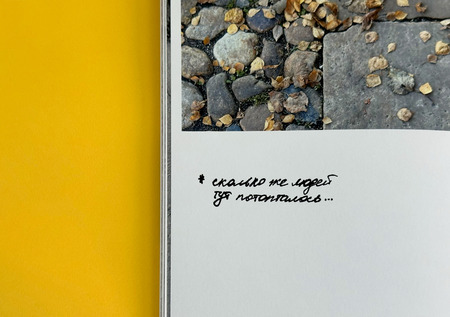 * сколько же людей
тут потопталось...